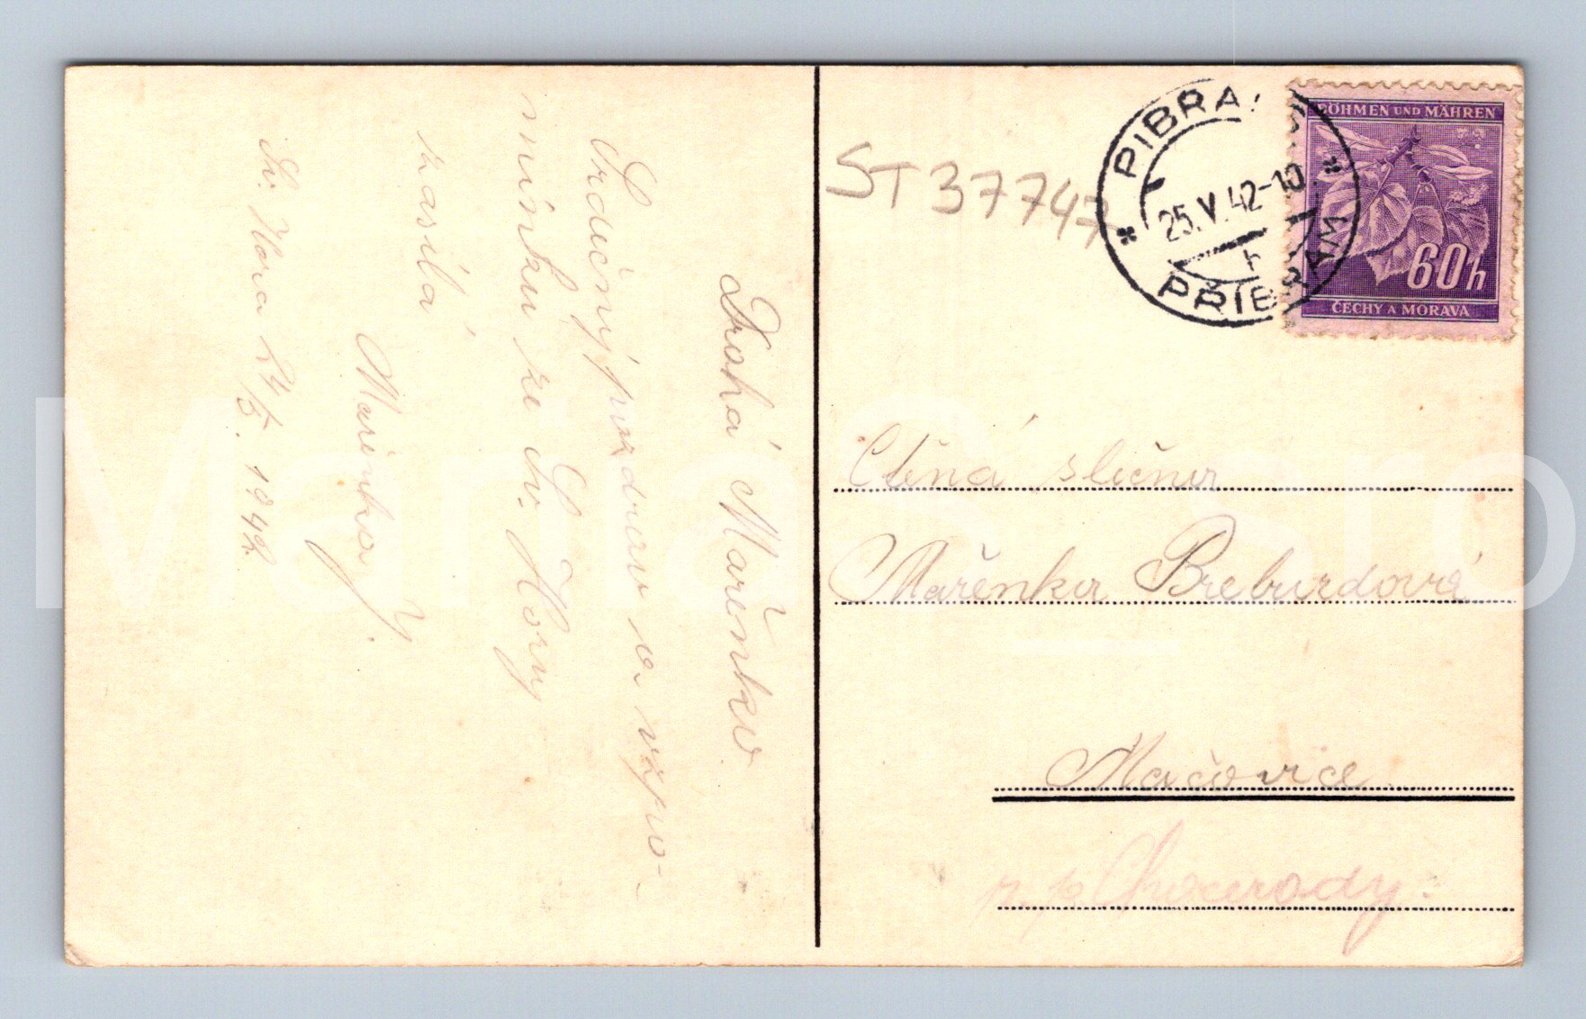 Drahá Mařenko
Srdečný pozdrav a vzpo-
mínku ze Sv. Hory
zasílá
Mařenka J.
Sv. Hora 24/5. 1942.
ST 37747
PIBRA
25.V.42-10
PŘÍBRAM
BÖHMEN UND MÄHREN
60h
ČECHY A MORAVA
Ctěná slečna
Mařenka
Mačovice
p. p. Chocerady.